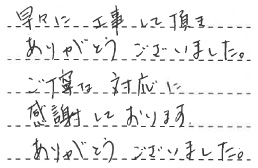 早々に 工事して頂き
ありがとう ございました。
ご丁寧な 対応に
感謝しております。
ありがとう ございました。